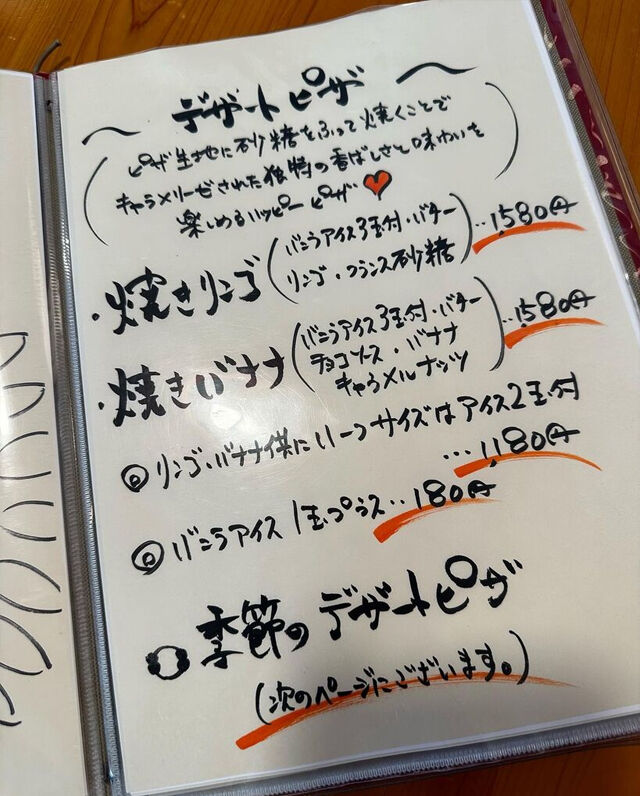 〜 デザートピザ 〜
(ピザ生地に砂糖をふって焼くことで
キャラメリーゼされた独特の香ばしさと味わいを
楽しめるハッピーピザ♥)
・焼きリンゴ(バニラアイス3玉付・バター
リンゴ・フランス砂糖)‥1,580円
・焼きバナナ(バニラアイス3玉付・バター
チョコソース・バナナ
キャラメルナッツ)‥1,580円
◎リンゴ・バナナ共にハーフサイズはアイス2玉付
…1,180円
◎バニラアイス1玉プラス‥180円
季節のデザートピザ
(次のページにございます。)